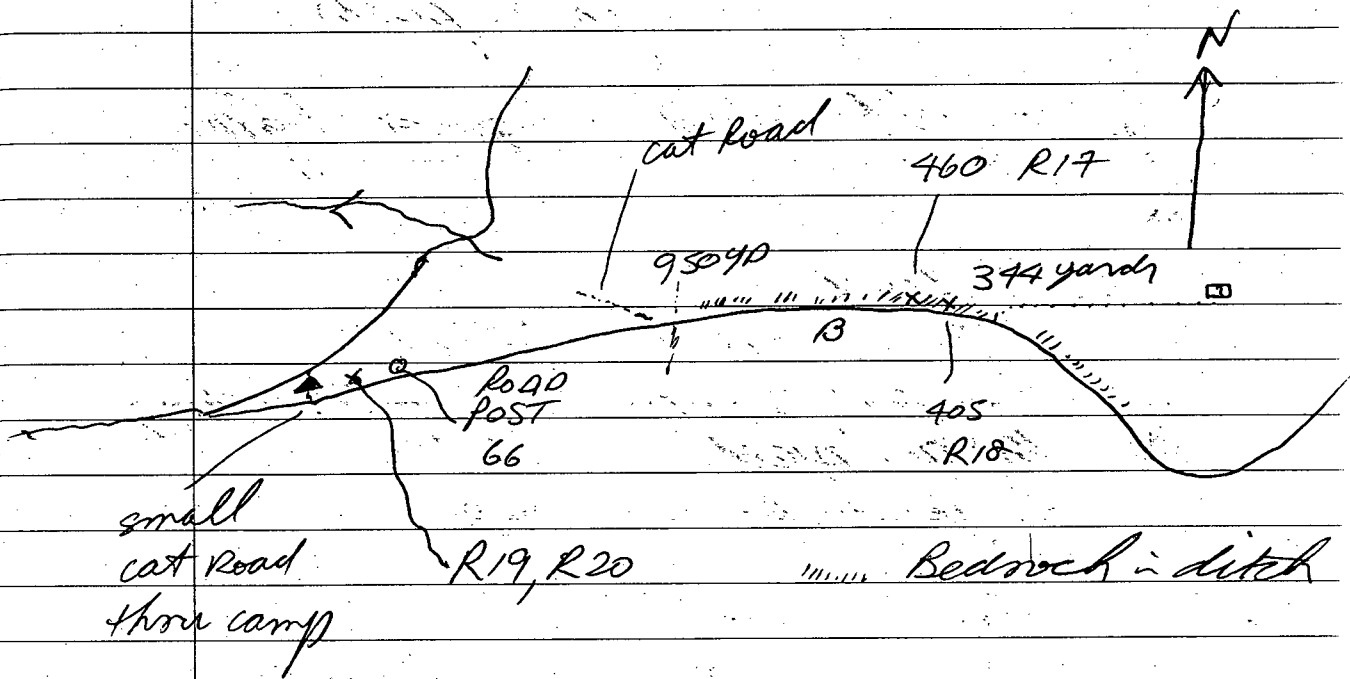 N
cat Road
460 R17
950 YD
344 yards
B
ROAD
POST
66
405
R18
small
cat Road
thru camp
R19, R20
Bedrock in ditch